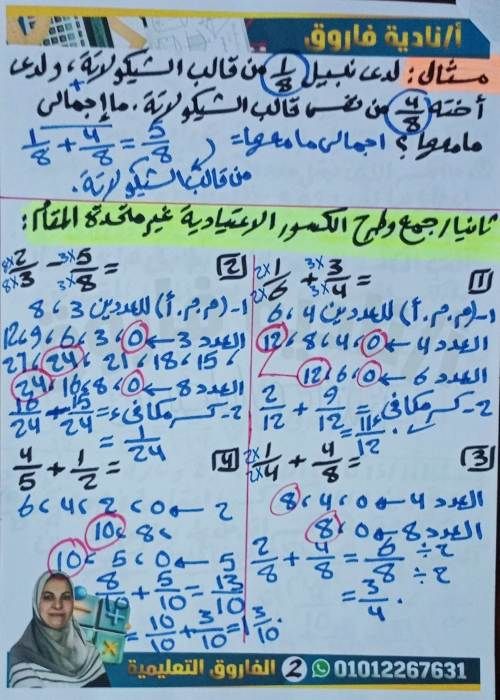 أ/نادية فاروق
مثال: لدى نبيل 1/8 من قالب الشيكولاتة، ولدى
أخته 4/8 من نفس قالب الشيكولاتة. ما إجمالى
ما معهما؟ اجمالى ما معهما = 1/8 + 4/8 = 5/8
من قالب الشيكولاتة.
ثانيا/ جمع وطرح الكسور الاعتيادية غير متحدة المقام:
1 2× 1/6 2× + 3× 3/4 3× =
1- (م.م.أ) للعددين 4، 6
العدد 4 ← 0، 4، 8، 12
العدد 6 ← 0، 6، 12
2- كسر مكافئ = 2/12 + 9/12
= 11/12.
2 8× 2/3 8× - 3× 5/8 3× =
1- (م.م.أ) للعددين 3، 8
العدد 3 ← 0، 3، 6، 9، 12
15، 18، 21، 24، 27
العدد 8 ← 0، 8، 16، 24
2- كسر مكافئ = 16/24 - 15/24
= 1/24
3 2× 1/4 2× + 4/8 =
العدد 4 ← 0، 4، 8
العدد 8 ← 0، 8
2/8 + 4/8 = 6/8 ÷2 ÷2
= 3/4.
4 4/5 + 1/2 =
2 ← 0، 2، 4، 6
8، 10
5 ← 0، 5، 10
8/10 + 5/10 = 13/10
= 10/10 + 3/10 = 1 3/10
الفاروق التعليمية 2 01012267631